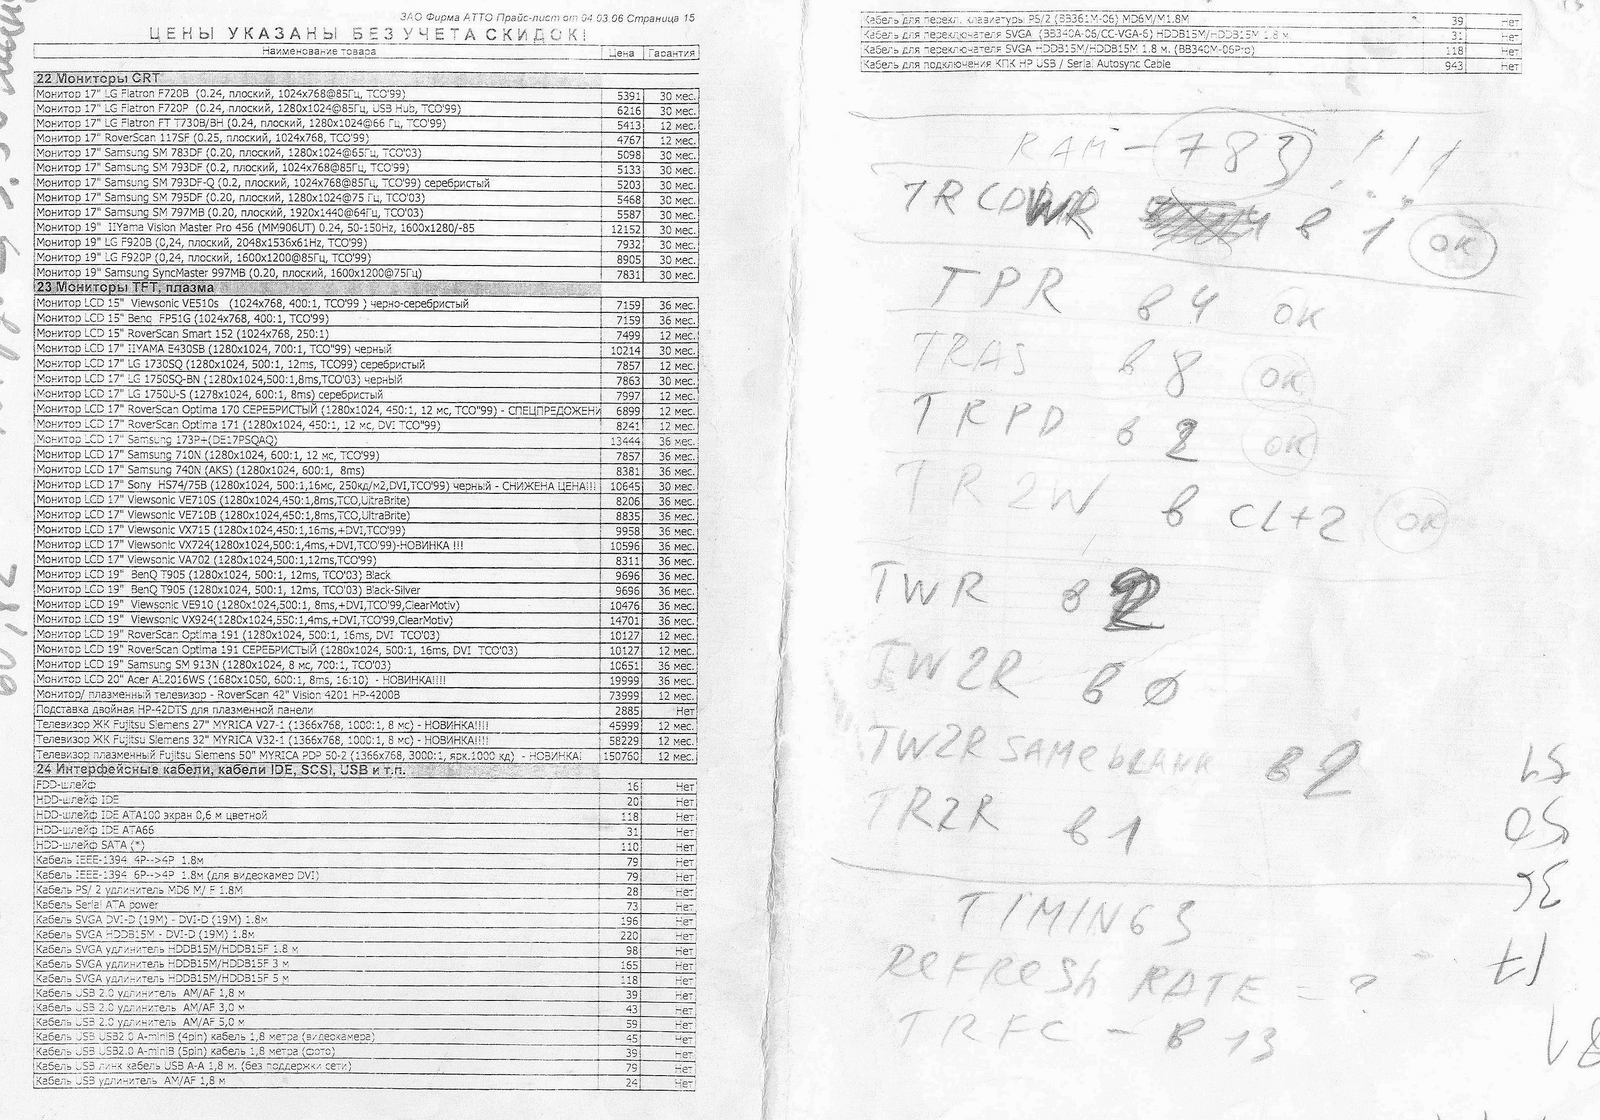 ЗАО Фирма АТТО Прайс-лист от 04.03.06 Страница 15
ЦЕНЫ УКАЗАНЫ БЕЗ УЧЕТА СКИДОК!
Наименование товара Цена Гарантия
22 Мониторы CRT
Монитор 17" LG Flatron F720B (0.24, плоский, 1024x768@85Гц, TCO'99) 5391 30 мес.
Монитор 17" LG Flatron F720P (0.24, плоский, 1280x1024@85Гц, USB Hub, TCO'99) 6216 30 мес.
Монитор 17" LG Flatron FT T730B/BH (0.24, плоский, 1280x1024@66 Гц, TCO'99) 5413 12 мес.
Монитор 17" RoverScan 117SF (0.25, плоский, 1024x768, TCO'99) 4767 12 мес.
Монитор 17" Samsung SM 783DF (0.20, плоский, 1280x1024@65Гц, TCO'03) 5098 30 мес.
Монитор 17" Samsung SM 793DF (0.2, плоский, 1024x768@85Гц, TCO'99) 5133 30 мес.
Монитор 17" Samsung SM 793DF-Q (0.2, плоский, 1024x768@85Гц, TCO'99) серебристый 5203 30 мес.
Монитор 17" Samsung SM 795DF (0.20, плоский, 1280x1024@75 Гц, TCO'03) 5468 30 мес.
Монитор 17" Samsung SM 797MB (0.20, плоский, 1920x1440@64Гц, TCO'03) 5587 30 мес.
Монитор 19" IIYama Vision Master Pro 456 (MM906UT) 0.24, 50-150Hz, 1600x1280/-85 12152 30 мес.
Монитор 19" LG F920B (0,24, плоский, 2048x1536x61Hz, TCO'99) 7932 30 мес.
Монитор 19" LG F920P (0,24, плоский, 1600x1200@85Гц, TCO'99) 8905 30 мес.
Монитор 19" Samsung SyncMaster 997MB (0.20, плоский, 1600x1200@75Гц) 7831 30 мес.
23 Мониторы TFT, плазма
Монитор LCD 15" Viewsonic VE510s (1024x768, 400:1, TCO'99 ) черно-серебристый 7159 36 мес.
Монитор LCD 15" Benq FP51G (1024x768, 400:1, TCO'99) 7159 36 мес.
Монитор LCD 15" RoverScan Smart 152 (1024x768, 250:1) 7499 12 мес.
Монитор LCD 17" IIYAMA E430SB (1280x1024, 700:1, TCO"99) черный 10214 30 мес.
Монитор LCD 17" LG 1730SQ (1280x1024, 500:1, 12ms, TCO99) серебристый 7857 12 мес.
Монитор LCD 17" LG 1750SQ-BN (1280x1024,500:1,8ms,TCO'03) черный 7863 30 мес.
Монитор LCD 17" LG 1750U-S (1278x1024, 600:1, 8ms) серебристый 7997 12 мес.
Монитор LCD 17" RoverScan Optima 170 СЕРЕБРИСТЫЙ (1280x1024, 450:1, 12 мс, TCO"99) - СПЕЦПРЕДОЖЕНИ 6899 12 мес.
Монитор LCD 17" RoverScan Optima 171 (1280x1024, 450:1, 12 мс, DVI TCO"99) 8241 12 мес.
Монитор LCD 17" Samsung 173P+(DE17PSQAQ) 13444 36 мес.
Монитор LCD 17" Samsung 710N (1280x1024, 600:1, 12 мс, TCO'99) 7857 36 мес.
Монитор LCD 17" Samsung 740N (AKS) (1280x1024, 600:1, 8ms) 8381 36 мес.
Монитор LCD 17" Sony HS74/75B (1280x1024, 500:1,16мс, 250кд/м2,DVI,TCO'99) черный - СНИЖЕНА ЦЕНА!!! 10645 30 мес.
Монитор LCD 17" Viewsonic VE710S (1280x1024,450:1,8ms,TCO,UltraBrite) 8206 36 мес.
Монитор LCD 17" Viewsonic VE710B (1280x1024,450:1,8ms,TCO,UltraBrite) 8835 36 мес.
Монитор LCD 17" Viewsonic VX715 (1280x1024,450:1,16ms,+DVI,TCO'99) 9958 36 мес.
Монитор LCD 17" Viewsonic VX724(1280x1024,500:1,4ms,+DVI,TCO'99)-НОВИНКА !!! 10596 36 мес.
Монитор LCD 17" Viewsonic VA702 (1280x1024,500:1,12ms,TCO'99) 8311 36 мес.
Монитор LCD 19" BenQ T905 (1280x1024, 500:1, 12ms, TCO'03) Black 9696 36 мес.
Монитор LCD 19" BenQ T905 (1280x1024, 500:1, 12ms, TCO'03) Black-Silver 9696 36 мес.
Монитор LCD 19" Viewsonic VE910 (1280x1024,500:1, 8ms,+DVI,TCO'99,ClearMotiv) 10476 36 мес.
Монитор LCD 19" Viewsonic VX924(1280x1024,550:1,4ms,+DVI,TCO'99,ClearMotiv) 14701 36 мес.
Монитор LCD 19" RoverScan Optima 191 (1280x1024, 500:1, 16ms, DVI TCO'03) 10127 12 мес.
Монитор LCD 19" RoverScan Optima 191 СЕРЕБРИСТЫЙ (1280x1024, 500:1, 16ms, DVI TCO'03) 10127 12 мес.
Монитор LCD 19" Samsung SM 913N (1280x1024, 8 мс, 700:1, TCO'03) 10651 36 мес.
Монитор LCD 20" Acer AL2016WS (1680x1050, 600:1, 8ms, 16:10) - НОВИНКА!!!! 19999 36 мес.
Монитор/ плазменный телевизор - RoverScan 42" Vision 4201 HP-4200B 73999 12 мес.
Подставка двойная HP-42DTS для плазменной панели 2885 Нет
Телевизор ЖК Fujitsu Siemens 27" MYRICA V27-1 (1366x768, 1000:1, 8 мс) - НОВИНКА!!!! 45999 12 мес.
Телевизор ЖК Fujitsu Siemens 32" MYRICA V32-1 (1366x768, 1000:1, 8 мс) - НОВИНКА!!!! 58229 12 мес.
Телевизор плазменный Fujitsu Siemens 50" MYRICA PDP 50-2 (1366x768, 3000:1, ярк.1000 кд) - НОВИНКА! 150760 12 мес.
24 Интерфейсные кабели, кабели IDE, SCSI, USB и т.п.
FDD-шлейф 16 Нет
HDD-шлейф IDE 20 Нет
HDD-шлейф IDE ATA100 экран 0,6 м цветной 118 Нет
HDD-шлейф IDE ATA66 31 Нет
HDD-шлейф SATA (*) 110 Нет
Кабель IEEE-1394 4P-->4P 1.8м 79 Нет
Кабель IEEE-1394 6P-->4P 1.8м (для видеокамер DVI) 79 Нет
Кабель PS/ 2 удлинитель MD6 M/ F 1.8M 28 Нет
Кабель Serial ATA power 73 Нет
Кабель SVGA DVI-D (19M) - DVI-D (19M) 1.8м 196 Нет
Кабель SVGA HDDB15M - DVI-D (19M) 1.8м 220 Нет
Кабель SVGA удлинитель HDDB15M/HDDB15F 1.8 м 98 Нет
Кабель SVGA удлинитель HDDB15M/HDDB15F 3 м 165 Нет
Кабель SVGA удлинитель HDDB15M/HDDB15F 5 м 118 Нет
Кабель USB 2.0 удлинитель AM/AF 1,8 м 39 Нет
Кабель USB 2.0 удлинитель AM/AF 3,0 м 43 Нет
Кабель USB 2.0 удлинитель AM/AF 5,0 м 59 Нет
Кабель USB USB2.0 A-miniB (4pin) кабель 1,8 метра (видеокамера) 45 Нет
Кабель USB USB2.0 A-miniB (5pin) кабель 1,8 метра (фото) 39 Нет
Кабель USB линк кабель USB A-A 1,8 м. (без поддержки сети) 79 Нет
Кабель USB удлинитель AM/AF 1,8 м 24 Нет
Кабель для перекл. клавиатуры PS/2 (BB361M-06) MD6M/M1.8M 39 Нет
Кабель для переключателя SVGA (BB340A-06/CC-VGA-6) HDDB15M/HDDB15M 1.8 м 31 Нет
Кабель для переключателя SVGA HDDB15M/HDDB15M 1.8 м. (BB340M-06Pro) 118 Нет
Кабель для подключения КПК HP USB / Serial Autosync Cable 943 Нет
RAM - 783 !!!
TRCDWR в 1 OK
TPR в 4 OK
TRAS в 8 OK
TRPD в 2 OK
TR2W в CL+2 OK
TWR в 2
TW2R в 0
TW2R SAMe bLANK в 2
TR2R в 1
TIMING 3
REFReSh RATE = ?
TRFC - в 13
51
50
36
17